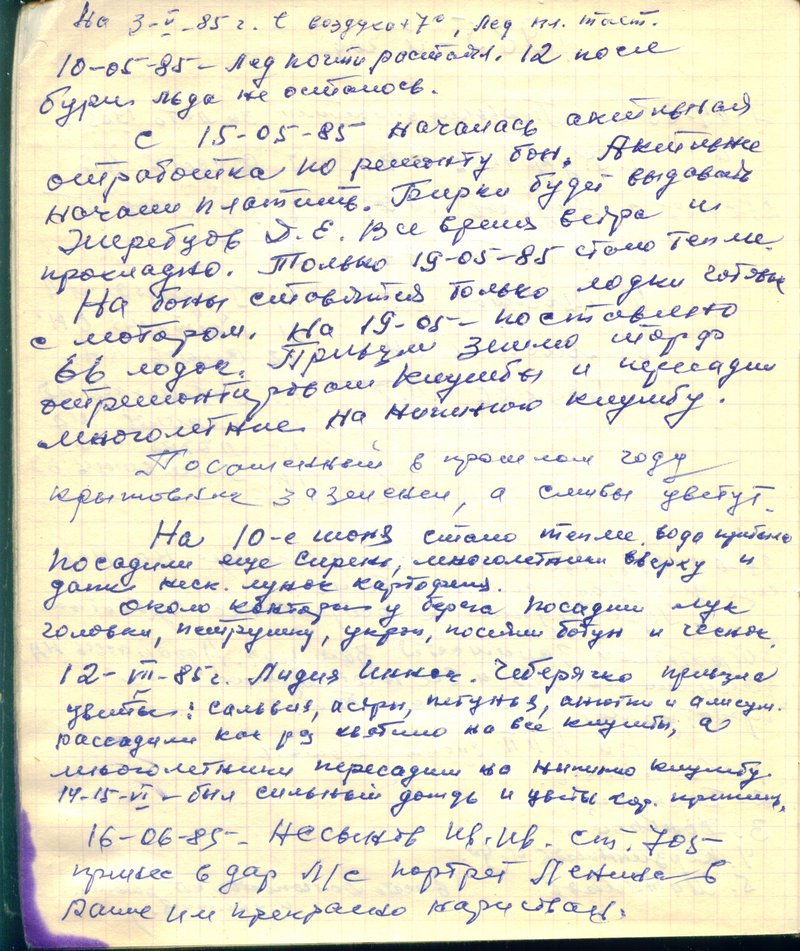 На 3-V-85 г. t воздуха +7°, лед пл. тает.
10-05-85 - Лед почти растаял. 12 после
бури льда не осталось.
С 15-05-85 началась активная
отработка по ремонту бон. Активнее
начали платить. Бирки будет выдавать
Жеребцов Д. Е. Все время ветра и
прохладно. Только 19-05-85 стало теплее.
На боны ставятся только лодки готовые
с мотором. На 19-05- поставлено
66 лодок. Привезли землю торф
отремонтировали клумбы и пересадили
многолетние на нижнюю клумбу.
Посаженный в прошлом году
крыжовник зазеленел, а сливы цветут.
На 10-е июня стало теплее, вода прибыла
Посадили еще сирень, многолетники вверху и
даже неск. лунок картофеля.
Около конторы у берега посадили лук
головки, петрушку, укроп, посеяли ботун и чеснок.
12-VI-85г. Лидия Иннок. Чеберячко привезла
цветы: сальвия, астры, петунья, анютки и алисум.
рассадили как раз хватило на все клумбы, а
многолетники пересадили на нижнюю клумбу.
14-15-VI - был сильный дождь и цветы хор.
16-06-85- Несынов Ив. Ив. ст. 705-
принес в дар Л/с портрет Ленина в
раме им прекрасно нарисован.